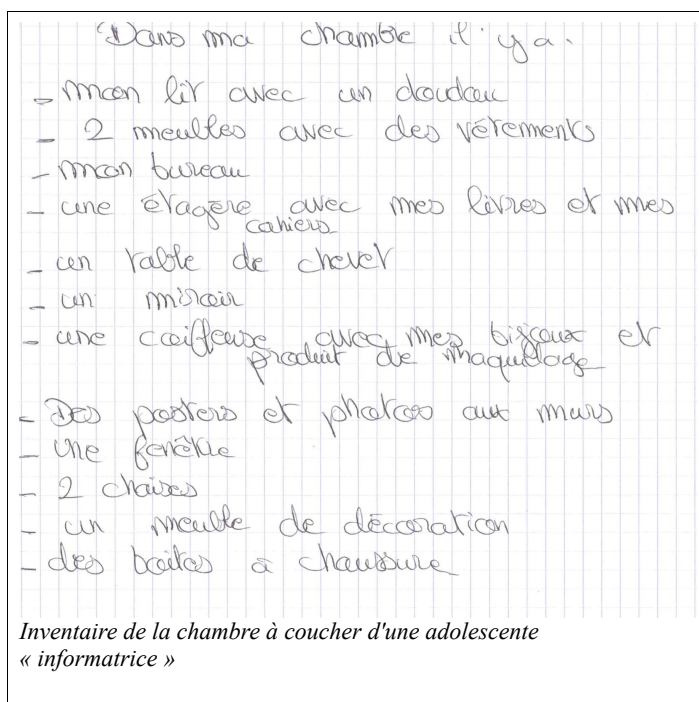 Dans ma chambre il y a.
- mon lit avec un doudou
- 2 meubles avec des vétements
- mon bureau
- une étagère avec mes livres et mes
cahiers
- un table de chevet
- un miroir
- une coiffeuse avec mes bijoux et
produit de maquillage
- Des posters et photos aux murs
- une fenêtre
- 2 chaises
- un meuble de décoration
- des boites à chaussure
Inventaire de la chambre à coucher d'une adolescente
« informatrice »